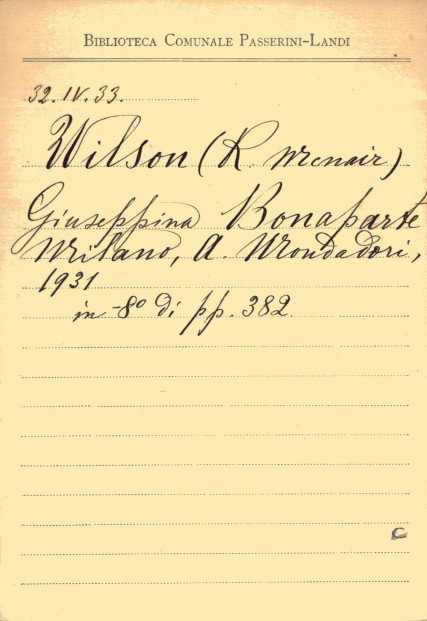 BIBLIOTECA COMUNALE PASSERINI-LANDI
32.IV.33.
Wilson (R. Mcnair)
Giuseppina Bonaparte
Milano, A. Mondadori,
1931
in -8º di pp. 382.
C